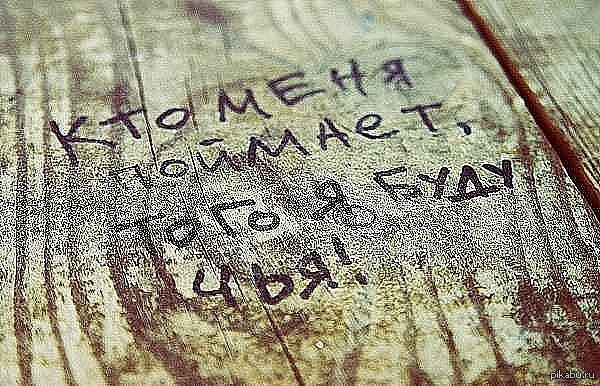 кто меня
поймает,
того я буду
чья!
pikabu.ru